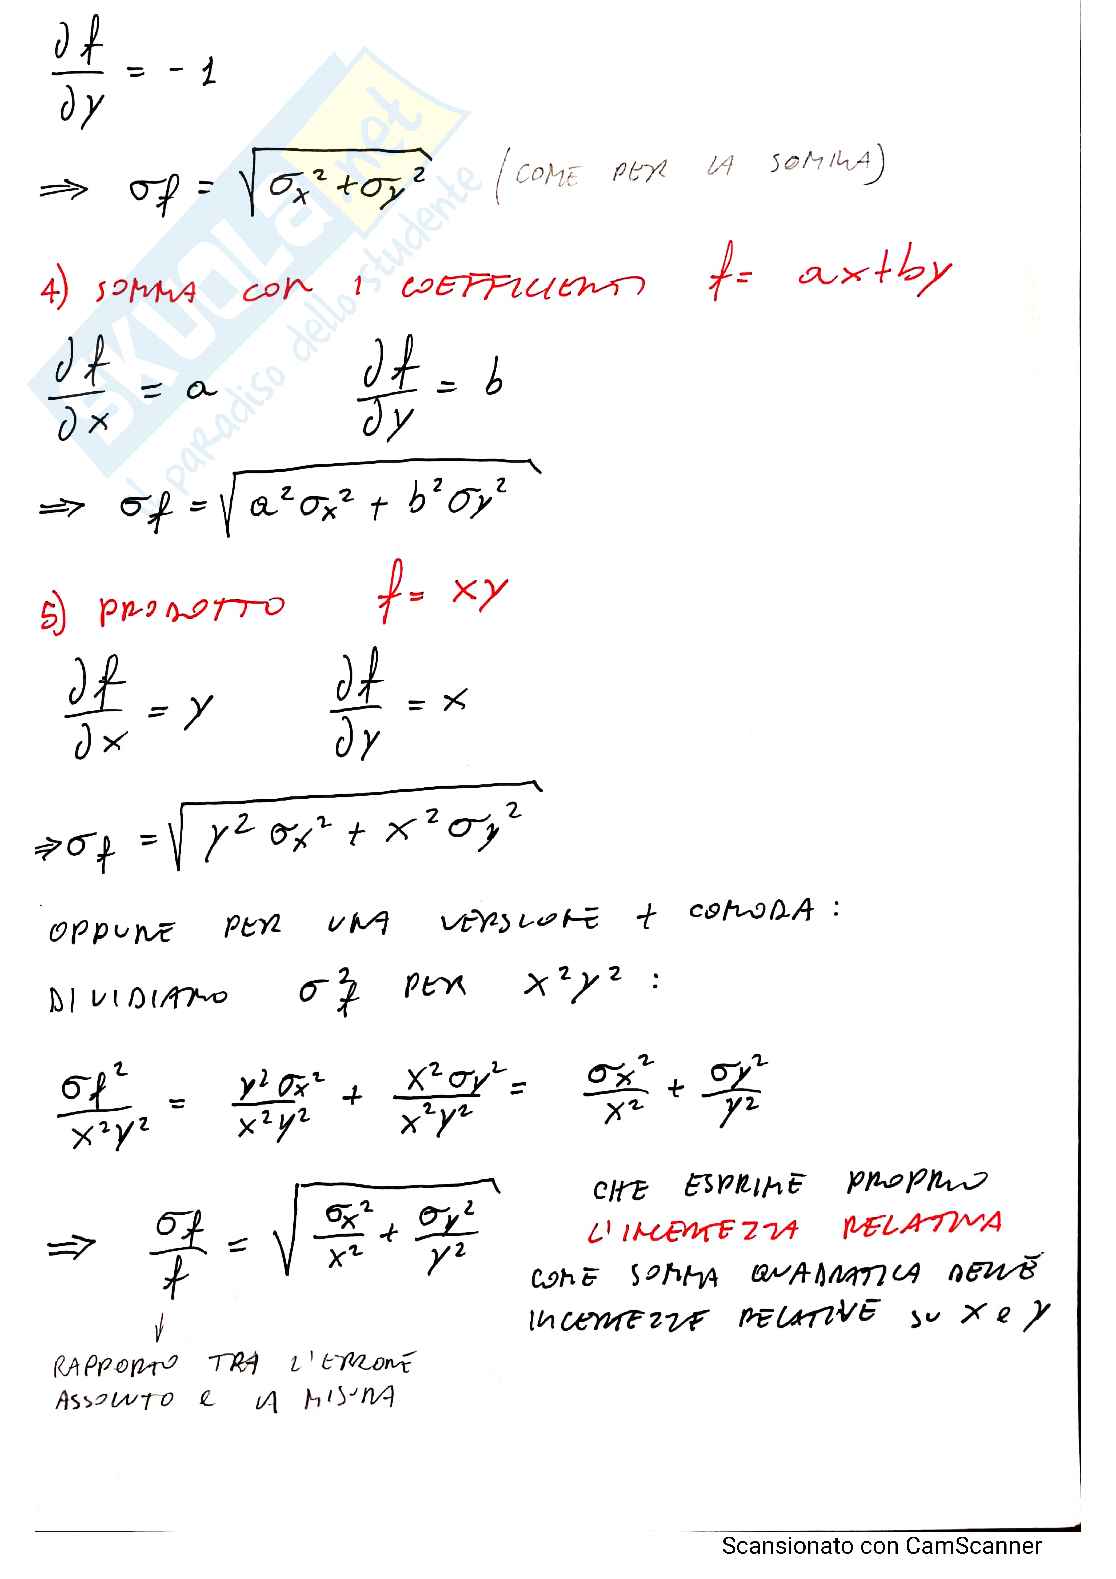 ∂f/∂y = - 1
⇒ σf = √(σx² + σy²) (COME PER LA SOMMA)
4) SOMMA CON I COEFFICIENTI f = ax+by
∂f/∂x = a ∂f/∂y = b
⇒ σf = √(a²σx² + b²σy²)
5) PRODOTTO f = xy
∂f/∂x = y ∂f/∂y = x
⇒ σf = √(y²σx² + x²σy²)
OPPURE PER UNA VERSIONE + COMODA :
DIVIDIAMO σf² PER x²y² :
σf²/x²y² = y²σx²/x²y² + x²σy²/x²y² = σx²/x² + σy²/y²
⇒ σf/f = √(σx²/x² + σy²/y²)
CHE ESPRIME PROPRIO
L'INCERTEZZA RELATIVA
COME SOMMA QUADRATICA DELLE
INCERTEZZE RELATIVE SU x e y
↓
RAPPORTO TRA L'ERRORE
ASSOLUTO E LA MISURA
SKUOLA.net
il paradiso dello studente
Scansionato con CamScanner